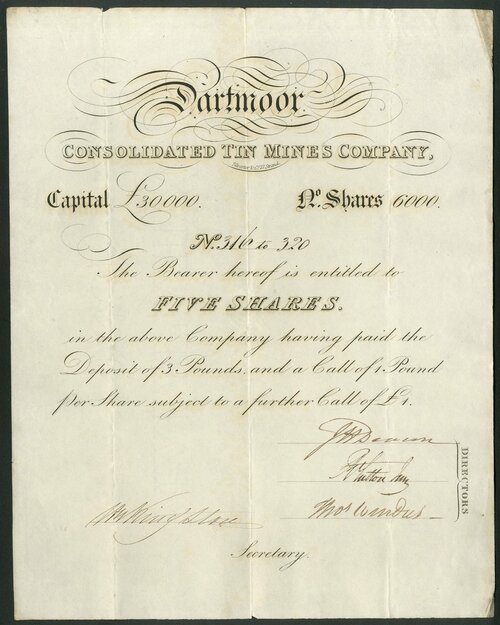 Dartmoor
CONSOLIDATED TIN MINES COMPANY,
Capital £30,000. No. Shares 6000.
No. 316 to 320
The Bearer hereof is entitled to
FIVE SHARES.
in the above Company having paid the
Deposit of 3 Pounds, and a Call of 1 Pound
per Share subject to a further Call of £1.
DIRECTORS
Thos Windus
Secretary.